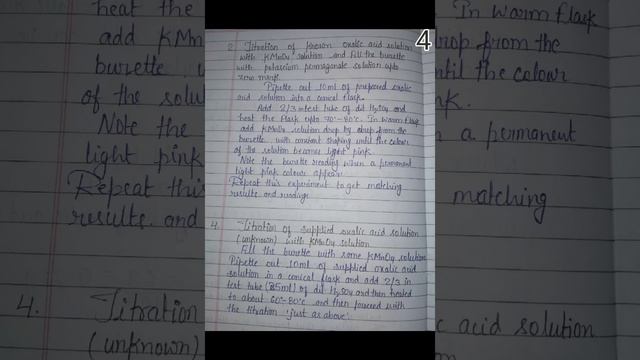 heat the
add KMn
burette
of the solu
Note the
light pink
Repeat this
results and
4. Titration
(unknown)
4
2. Titration of known oxalic acid solution
with KMnO4 solution and fill the burette
with potassium permagnate solution upto
zero mark.
Pipette out 10ml of prepared oxalic
acid solution into a conical flask.
Add 2/3 test tube of dil H2SO4 and
heat the flask upto 70°-80°c. In warm flask
add KMnO4 solution drop by drop from the
burette with constant shaking until the colour
of the solution becomes light pink.
Note the burette reading when a permanent
light pink colour appear.
Repeat this experiment to get matching
results and readings
4. Titration of supplied oxalic acid solution
(unknown) with KMnO4 solution
Fill the burette with some KMnO4 solution
Pipette out 10ml of supplied oxalic acid
solution in a conical flask and add 2/3 in
test tube (85ml) of dil H2SO4 and then heated
to about 60°-80°c and then proceed with
the titration 'just as above'.
In warm flask
drop from the
ntil the colour
nk.
a permanent
matching
c acid solution